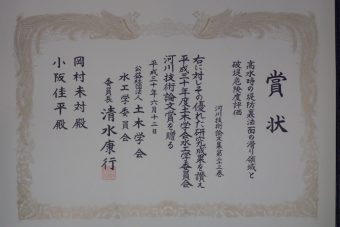 賞状
高水時の堤防裏法面の滑り領域と
破堤危険度評価
河川技術論文集第二十三巻
右に対しその優れた研究成果を讃え
平成三十年度土木学会水工学委員会
河川技術論文賞を贈る
平成三十年六月十二日
公益社団法人土木学会
水工学委員会
委員長 清水康行
岡村未対殿
小阪佳平殿